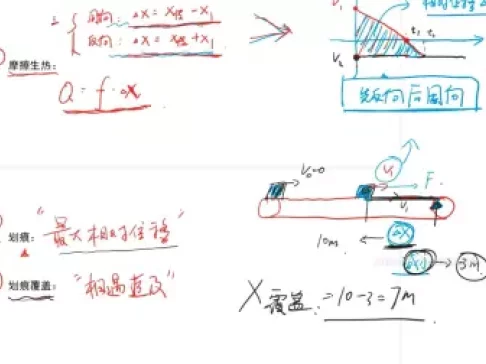 同向: ΔX = X传 - X₁
反向: ΔX = X传 + X₁
摩擦生热:
Q = f·ΔX
V₁
t₁
V₂
先反向后同向
V₀=0
V₁
F
V₁
10m
ΔX
3m
划痕: "最大相对位移"
划痕覆盖: "相遇直及"
X覆盖: = 10-3 = 7m